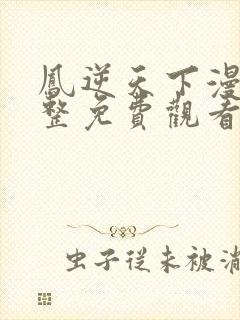 鳳逆天下漫
整免費觀看
虫子從未被消